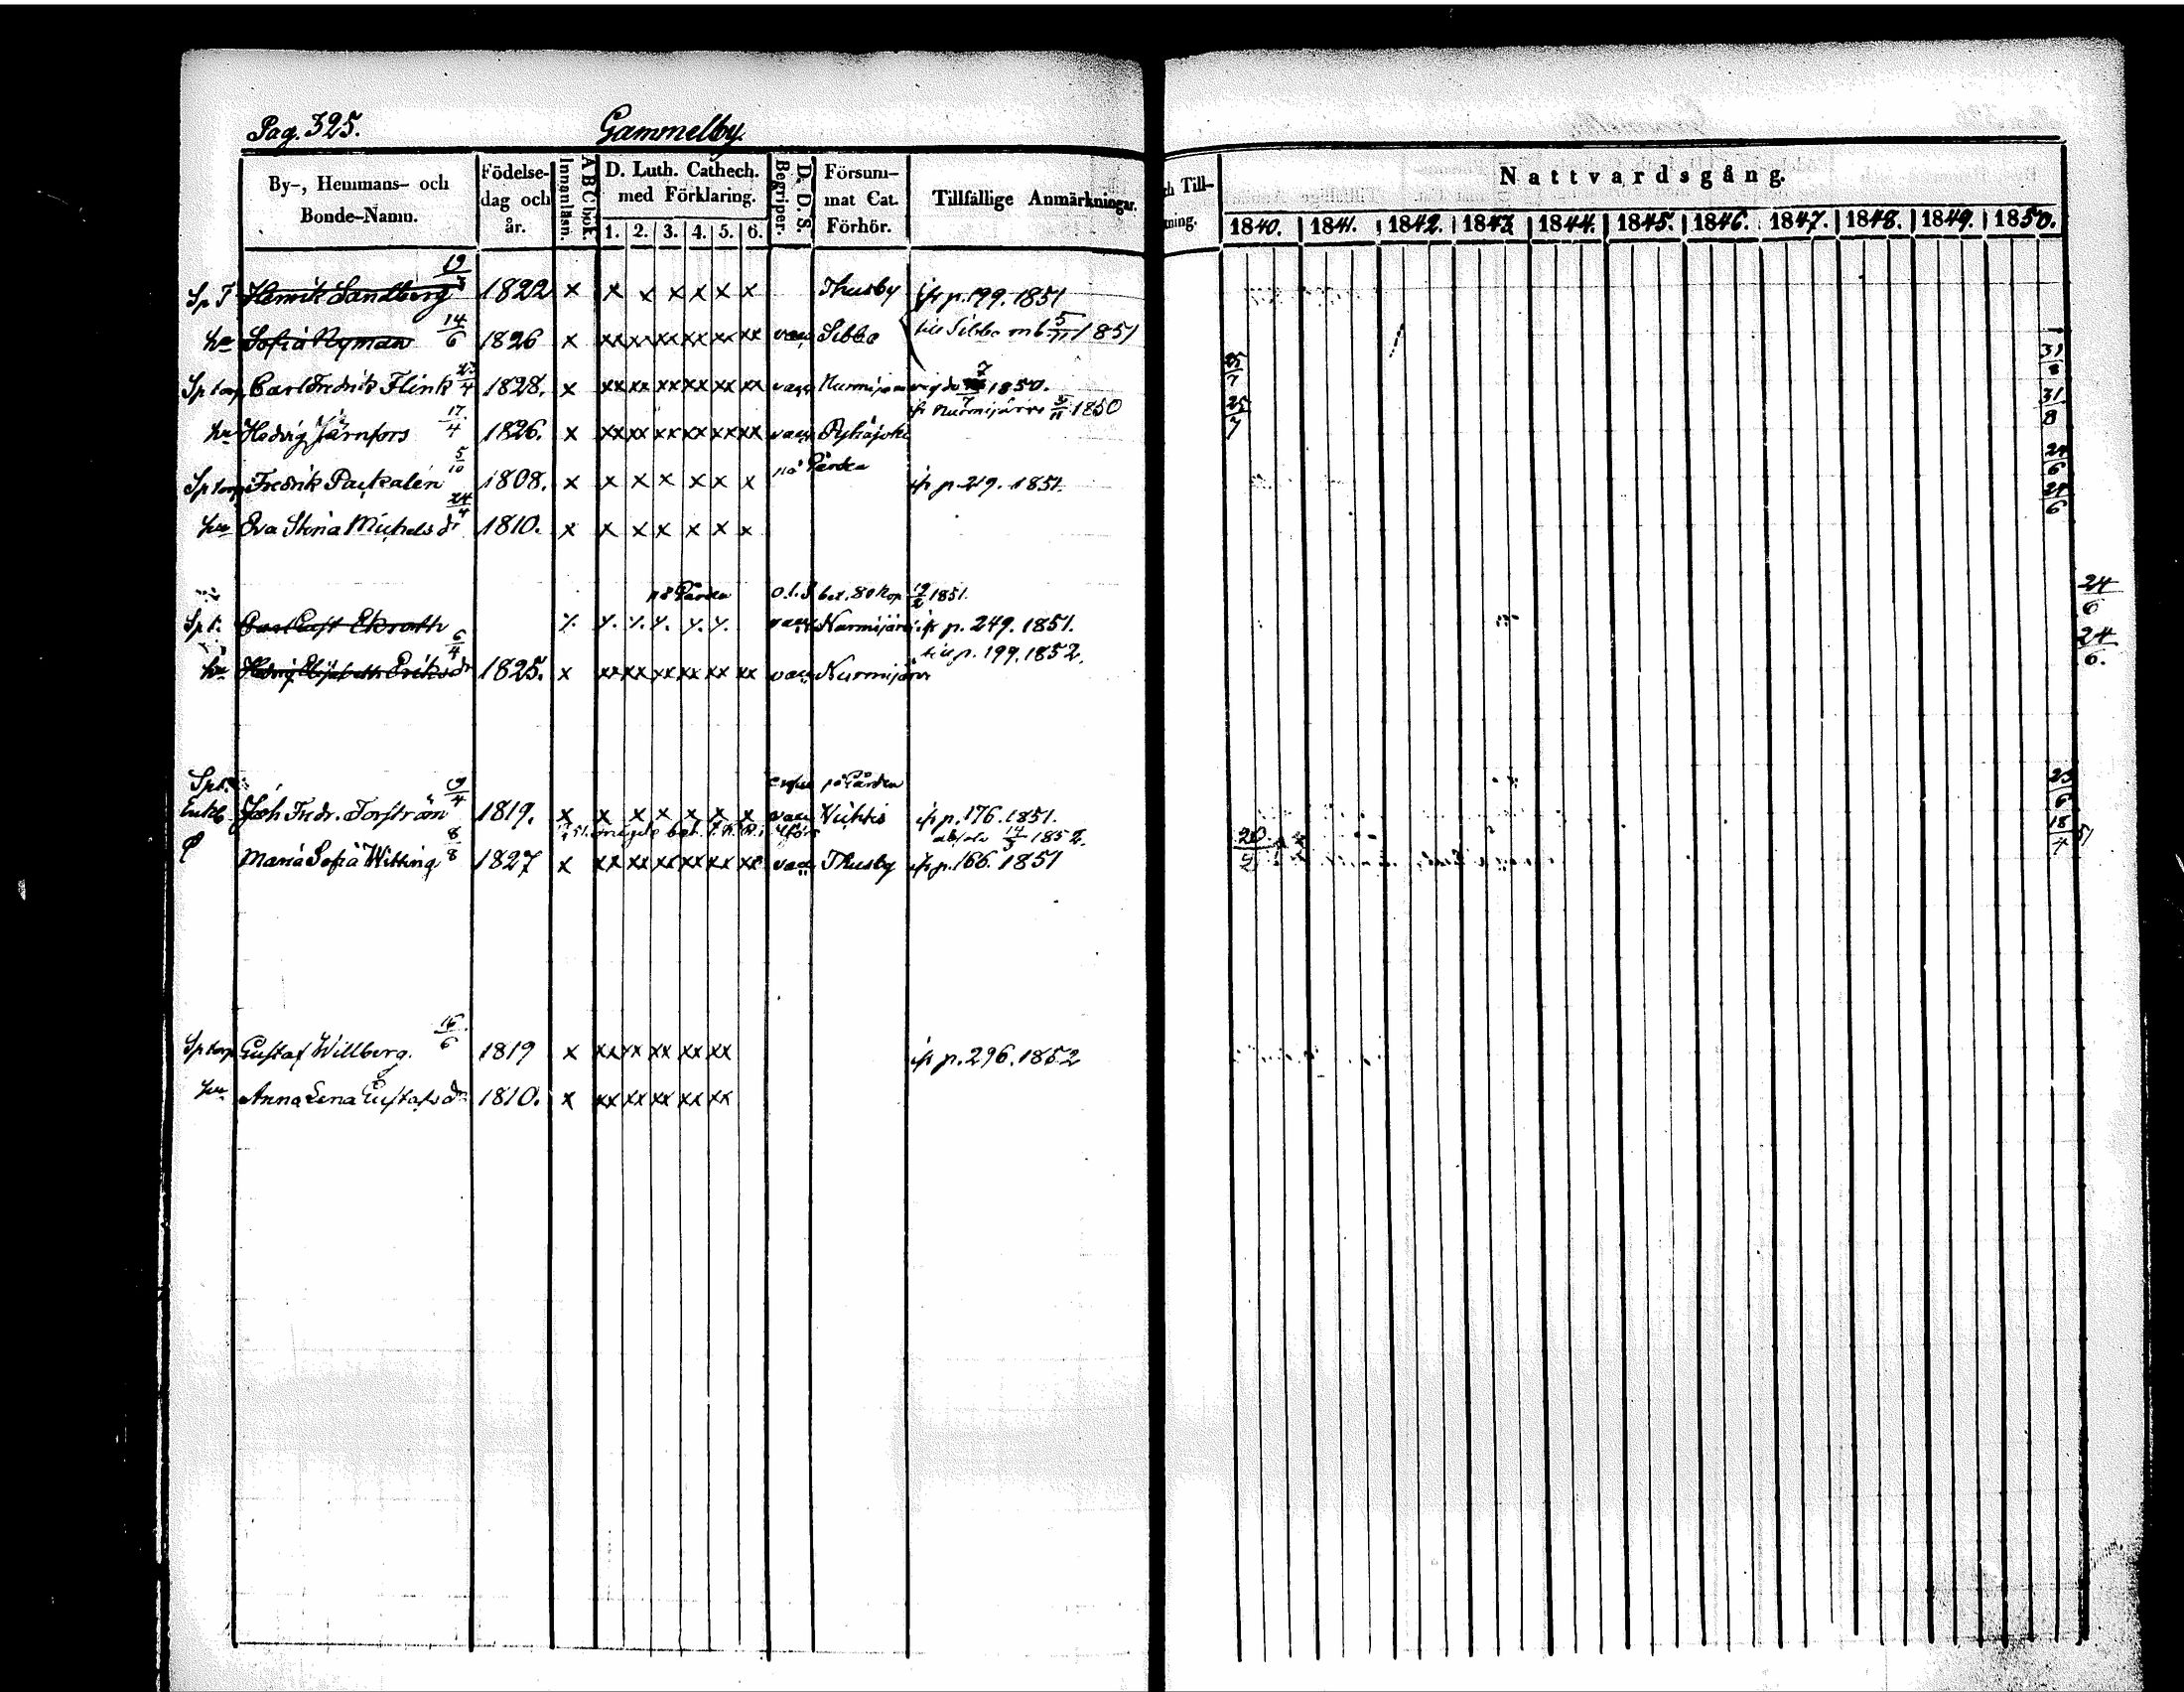 Pag. 325. Gammelby
By-, Hemmans- och Bonde-Namn. Födelse-dag och år. Innanläsn. A B C bok. D. Luth. Cathech. med Förklaring. 1. 2. 3. 4. 5. 6. Begriper. D. D. S. Försum-mat Cat. Förhör. Tillfällige Anmärkningar.
Till- ning. Nattvardsgång.
1840. 1841. 1842. 1843. 1844. 1845. 1846. 1847. 1848. 1849. 1850.
Sp T Henrik Sandberg 19/7 1822 x x x x x x x Thusby ifr p. 199. 1851
hu Sofia Nyman 14/6 1826 x xx xx xx xx xx xx vacc Sibbo till Sibbo mb 5/11 1851
Sp torp Carl Fredrik Flink 23/4 1828. x xx xx xx xx xx xx vacc 7/7 1850. 25/7 31/8
ifr Nurmijärvi 5/11 1850
hu Hedvig Järnfors 17/4 1826. x xx xx xx xx xx xx vacc Pyhäjoki 25/7 31/8
på Gården
Sp torp Fredrik Packalen 5/10 1808. x x x x x x x ifr p. 219. 1851. 24/6
hu Eva Stina Michels dr 24/4 1810. x x x x x x x 24/6
på Gården bet. 80 kop 19/2 1851.
Sp t. Carl Gust Ekroth vacc Nurmijärvi ifr p. 249. 1851. 24/6
till p. 199. 1852.
hu Hedvig Elisabeth Eriks dr 6/4 1825. x xx xx xx xx xx xx vacc Nurmijärvi 24/6.
Sp t. på Gården
Enkl. Joh Fredr. Forström 9/4 1819. x x x x x x x vacc Vichtis ifr p. 176. 1851. 23/6
absolv 14/3 1852.
Maria Sofia Witting 8/8 1827 x xx xx xx xx xx xx vacc Thusby ifr p. 166. 1851 18/4 51
Sp torp Gustaf Willberg. 16/6 1819 x xx xx xx xx xx ifr p. 296. 1852
hu Anna Lena Gustafs dr 1810. x xx xx xx xx xx